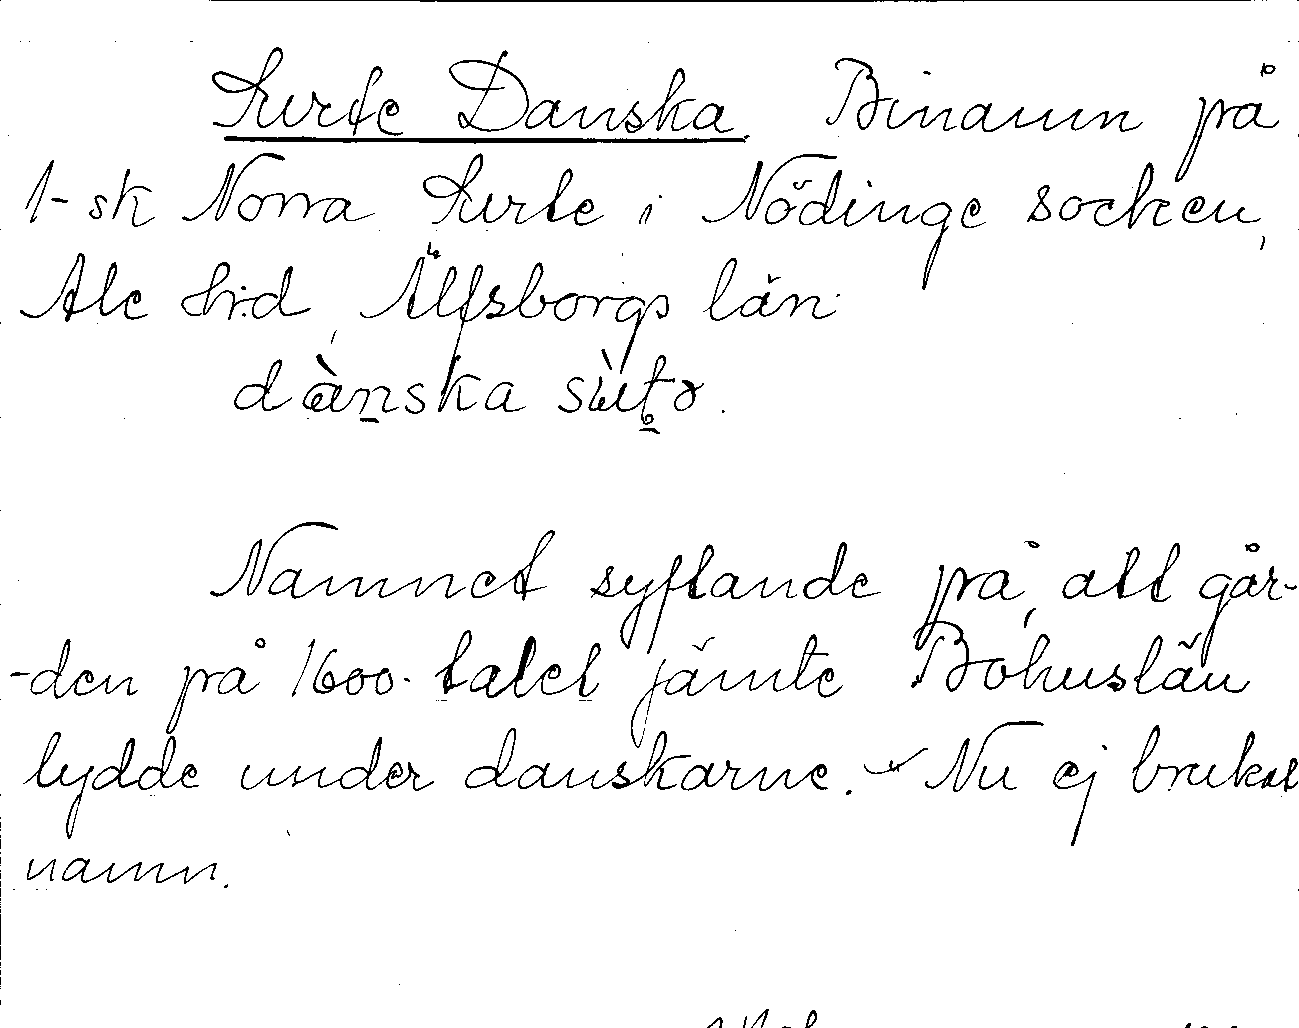 Surte Danska. Binamn på
1-sk Norra Surte i Nödinge socken,
Ale hrd, Älfsborgs län.
dànska sùtə.
Namnet syftande på, att går-
-den på 1600-talet jämte Bohuslän
lydde under danskarne. – Nu ej brukat
namn.